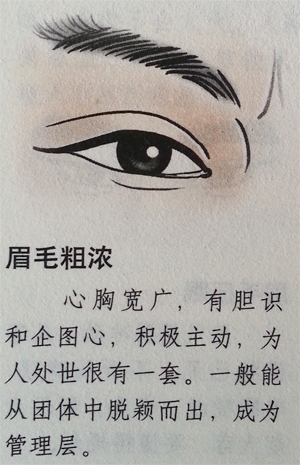 眉毛粗浓
心胸宽广，有胆识
和企图心，积极主动，为
人处世很有一套。一般能
从团体中脱颖而出，成为
管理层。